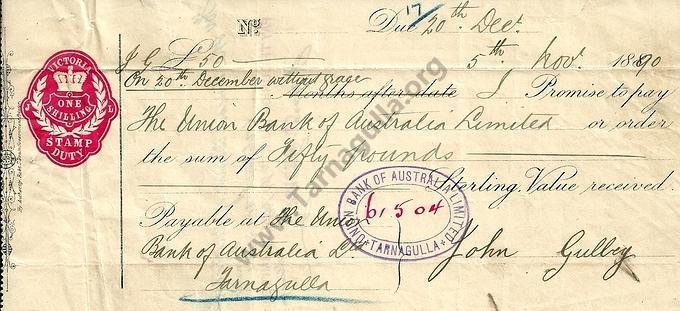 17
No Due 20th Decr
J G £50 5th Novr 1890
On 20th December without grace
Months after date I Promise to pay
The Union Bank of Australia Limited or order
the sum of Fifty pounds
Sterling, Value received.
Payable at The Union
Bank of Australia Ld
Tarnagulla
John Gulbey
VICTORIA
ONE
SHILLING
STAMP
DUTY
UNION BANK OF AUSTRALIA LIMITED
61 5 04
TARNAGULLA
www.Tarnagulla.org